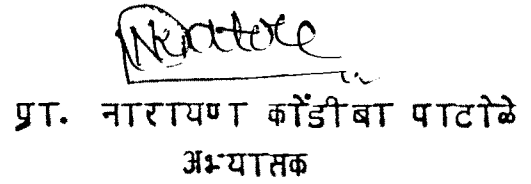 प्रा. नारायण कोंडीबा पाटोळे
अभ्यासक